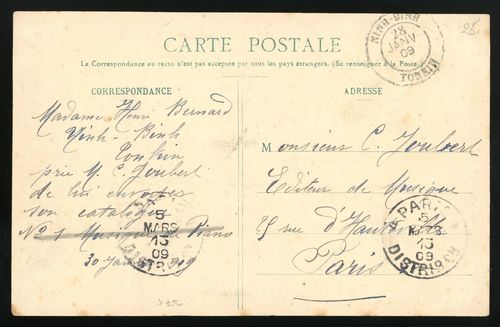 CARTE POSTALE
La Correspondance au recto n'est pas acceptée par tous les pays étrangers. (Se renseigner à la Poste)
NINH-BINH
28
JANV
09
TONKIN
CORRESPONDANCE
Madame Henri Bernard
Ninh-Binh
Tonkin
prie M. C. Joubert
de lui envoyer
son catalogue
No 1 Musique de Piano
30 Janv 1909
5
MARS
15
09
DISTRIB
ADRESSE
Monsieur C. Joubert
Editeur de Musique
25 rue d'Hauteville
Paris
PARIS
5
MARS
15
09
DISTRIBON